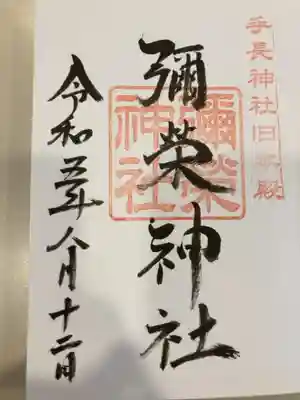 手長神社旧本殿
彌榮神社
彌榮
神社
令和五年八月十二日